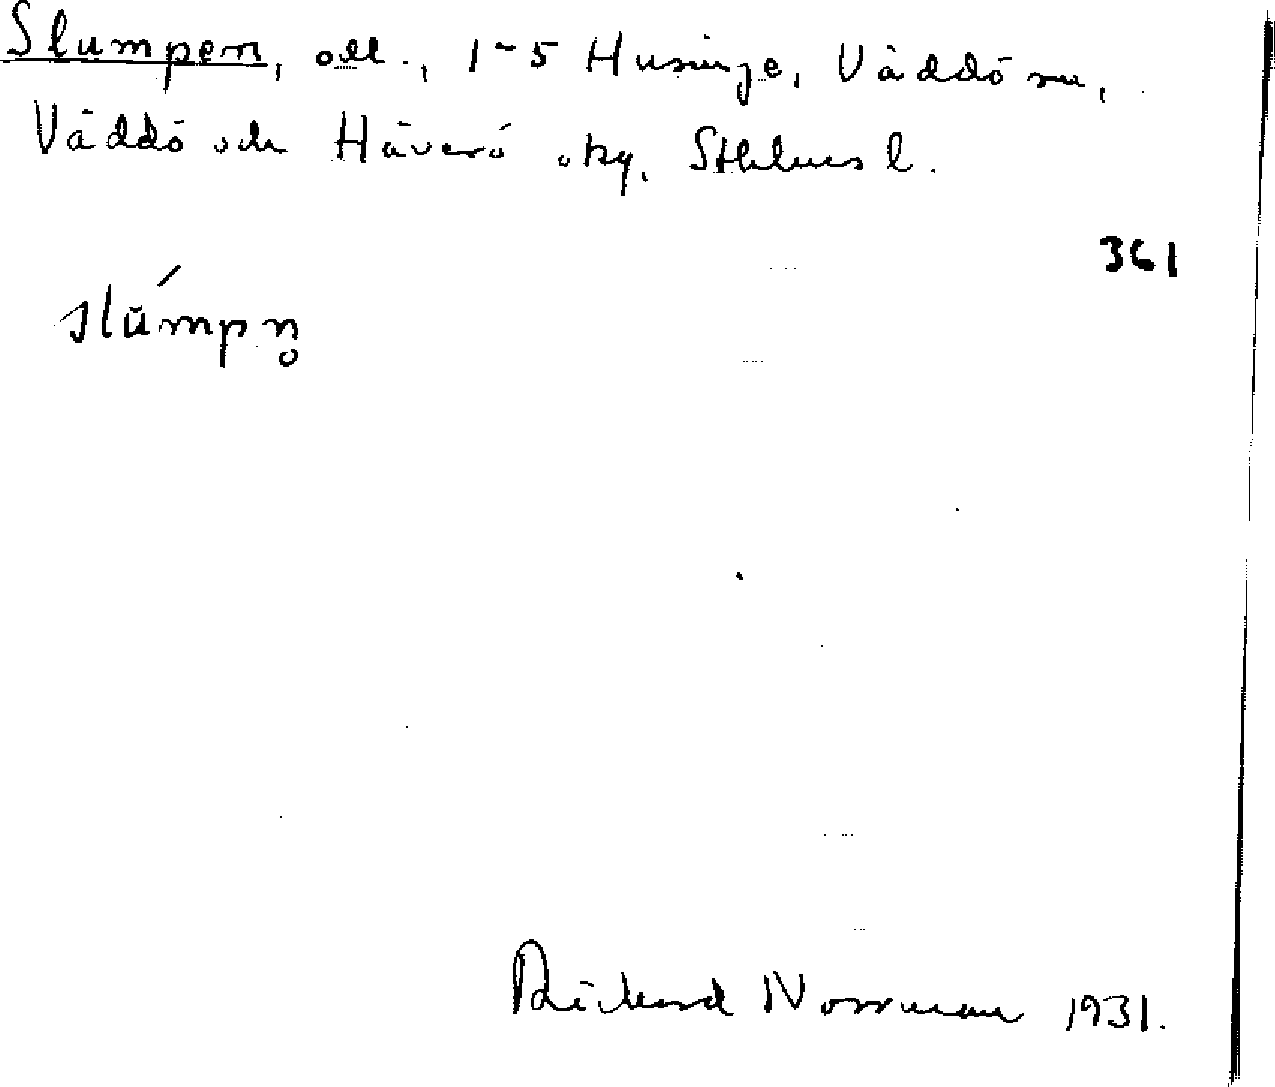 Slumpen, odl., 1-5 Husinge, Väddö sn,
Väddö och Häverö skg, Sthlms l.
361
slúmpn̥
Rickard Norrman 1931.